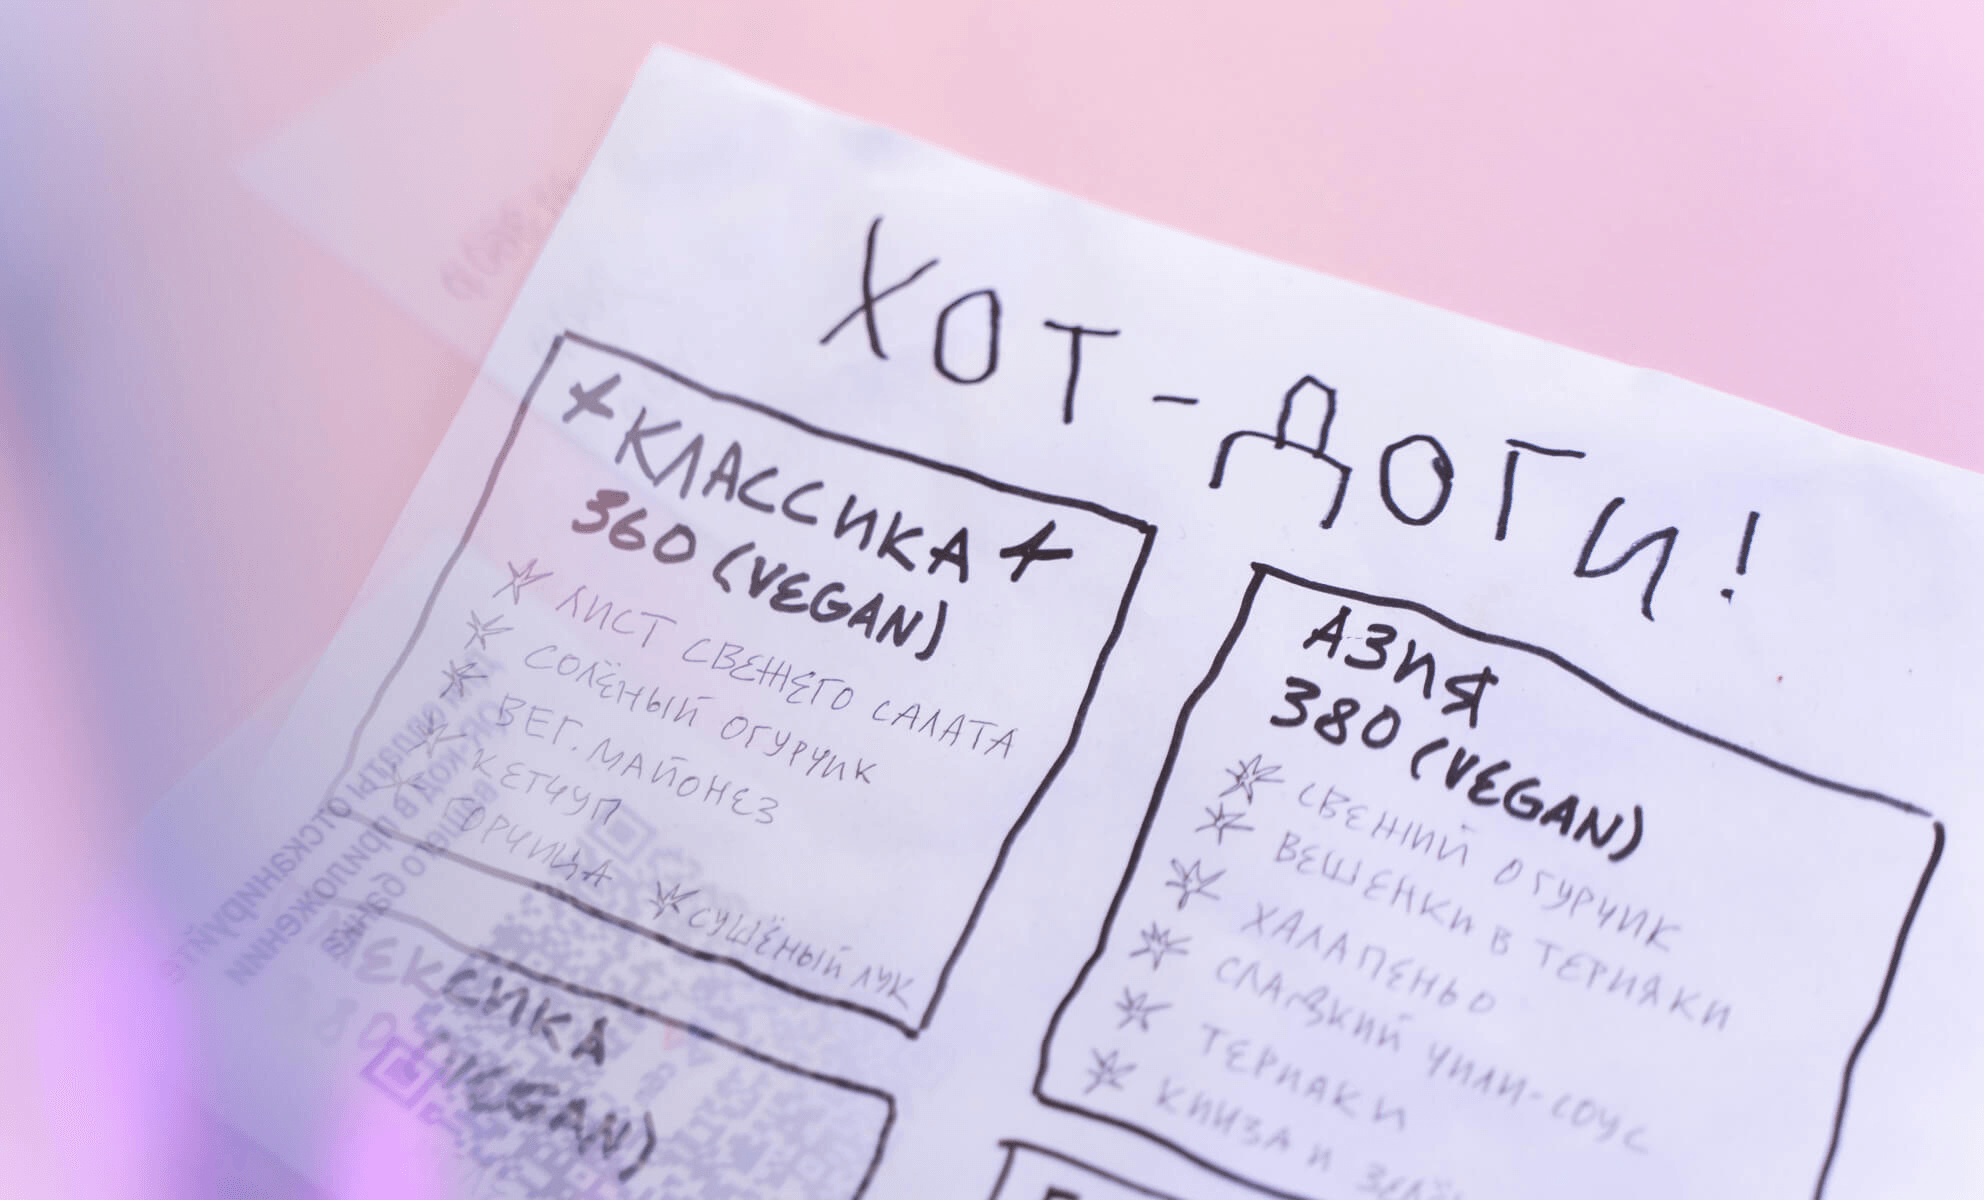 ХОТ-ДОГИ!
КЛАССИКА
360 (VEGAN)
ЛИСТ СВЕЖЕГО САЛАТА
СОЛЁНЫЙ ОГУРЧИК
ВЕГ. МАЙОНЕЗ
КЕТЧУП
ГОРЧИЦА
СУШЁНЫЙ ЛУК
АЗИЯ
380 (VEGAN)
СВЕЖИЙ ОГУРЧИК
ВЕШЕНКИ В ТЕРИЯКИ
ХАЛАПЕНЬО
СЛАДКИЙ ЧИЛИ-СОУС
ТЕРИЯКИ
КИНЗА И
МЕКСИКА
380
(VEGAN)
отсканируйте
QR-код в приложении
вашего банка